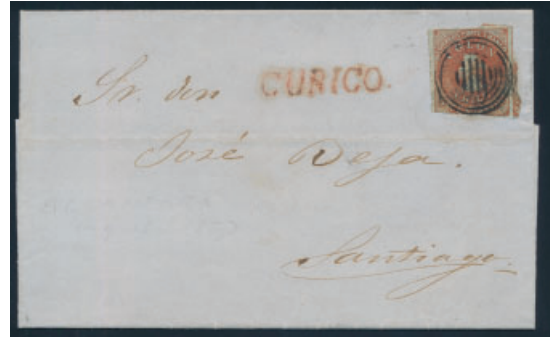 Sr. don CURICO.
José Deja.
Santiago.